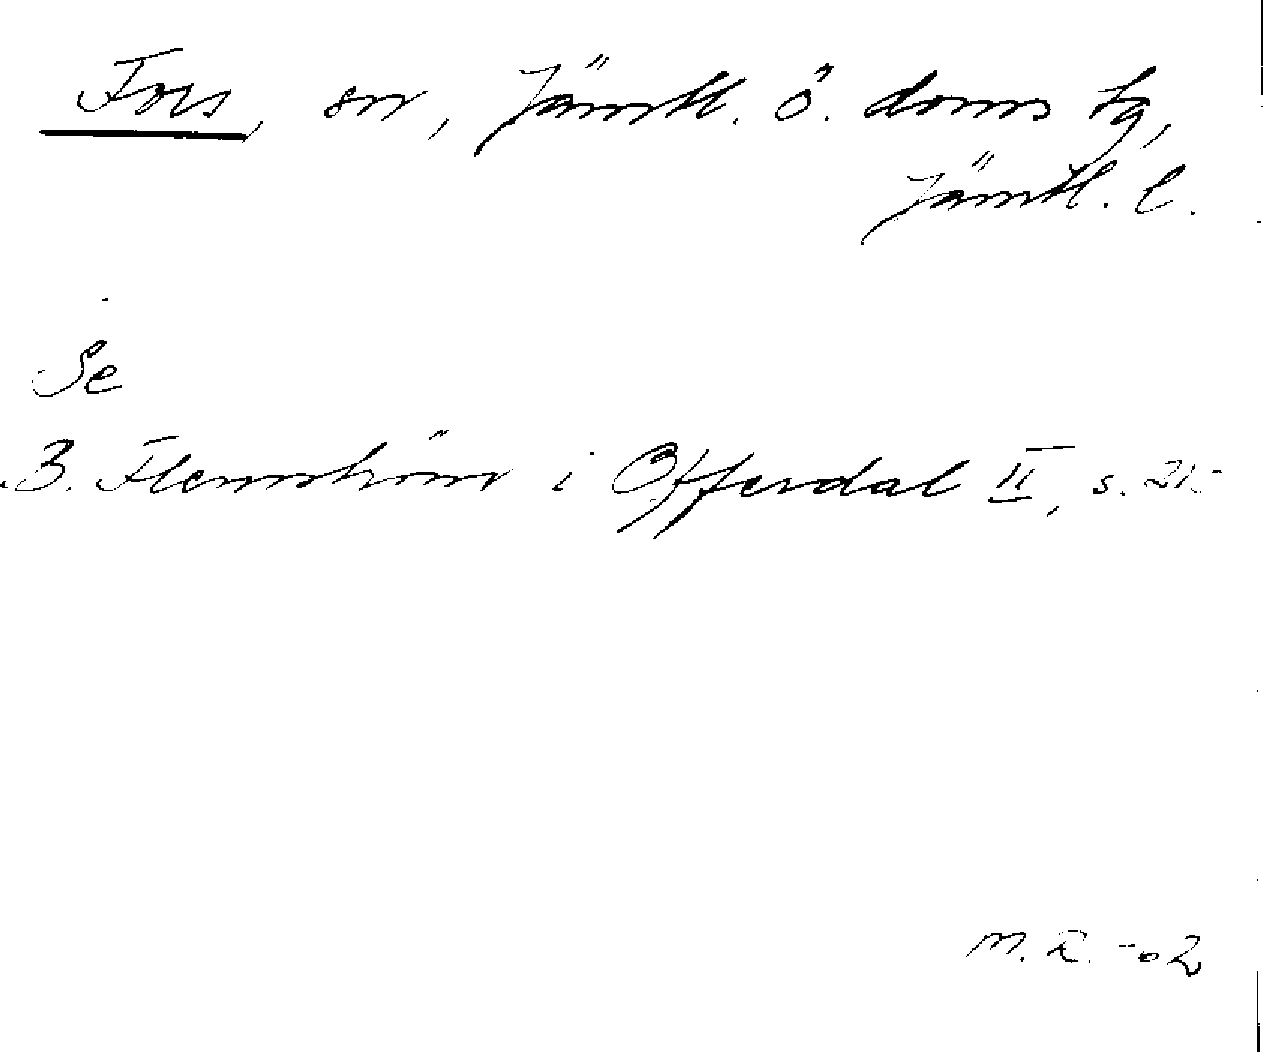 Fors, sn, Jämtl. ö. doms tg,
Jämtl. l.
Se
B. Flemström i Offerdal II, s.
M. R. -02